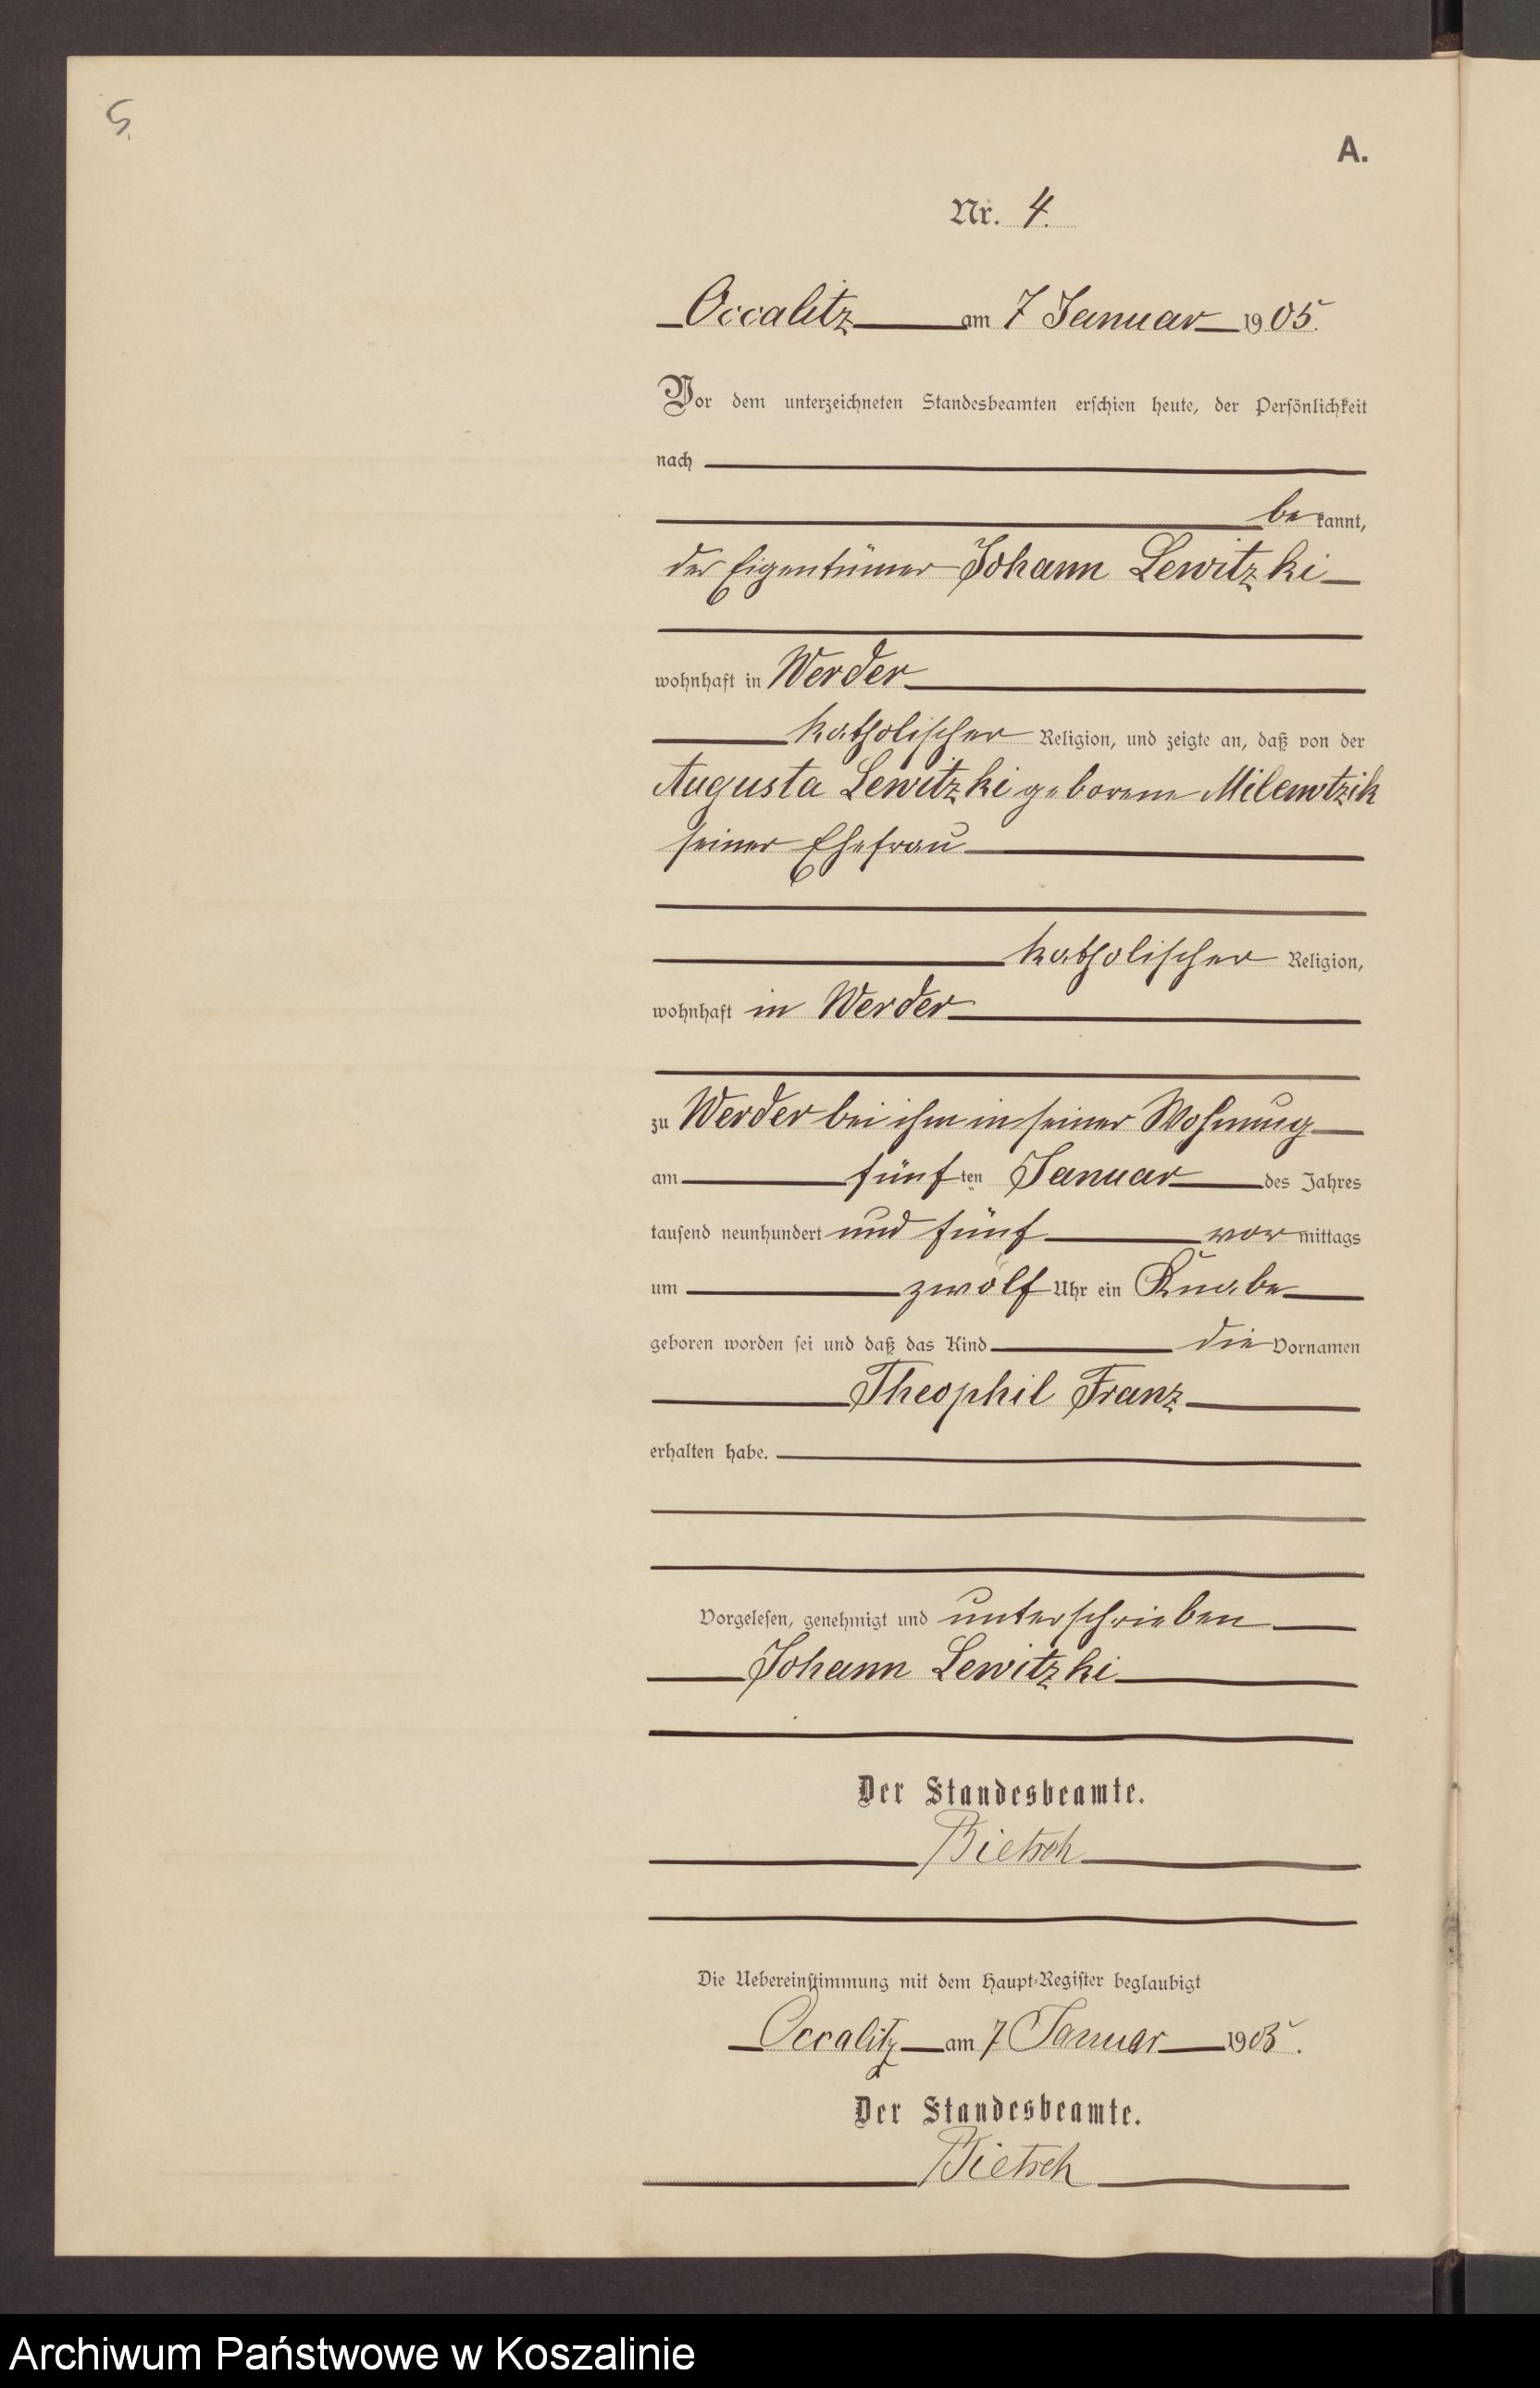 5.
A.
Nr. 4.
Occalitz am 7 Januar 1905.
Vor dem unterzeichneten Standesbeamten erschien heute, der Persönlichkeit
nach
bekannt,
der Eigentümer Johann Lewitzki
wohnhaft in Werder
katholischer Religion, und zeigte an, daß von der
Augusta Lewitzki geborene Milewtzik
seiner Ehefrau
katholischer Religion,
wohnhaft in Werder
zu Werder bei ihm in seiner Wohnung
am fünften Januar des Jahres
tausend neunhundert und fünf vormittags
um zwölf Uhr ein Knabe
geboren worden sei und daß das Kind die Vornamen
Theophil Franz
erhalten habe.
Vorgelesen, genehmigt und unterschrieben
Johann Lewitzki
Der Standesbeamte.
Bietsch
Die Uebereinstimmung mit dem Haupt-Register beglaubigt
Occalitz am 7 Januar 1905.
Der Standesbeamte.
Bietsch
Archiwum Państwowe w Koszalinie